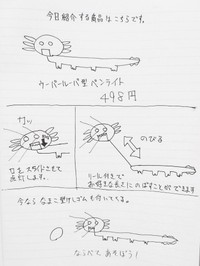 今日紹介する商品はこちらです。
ウーパールーパ型ペンライト
498円
カッ
口をスライドさせて
点灯します。
のびる
リール付きで
お好きな長さにのばすことができます
今なら なまこ型けしゴムも付いてくる。
ならべて あそぼう！